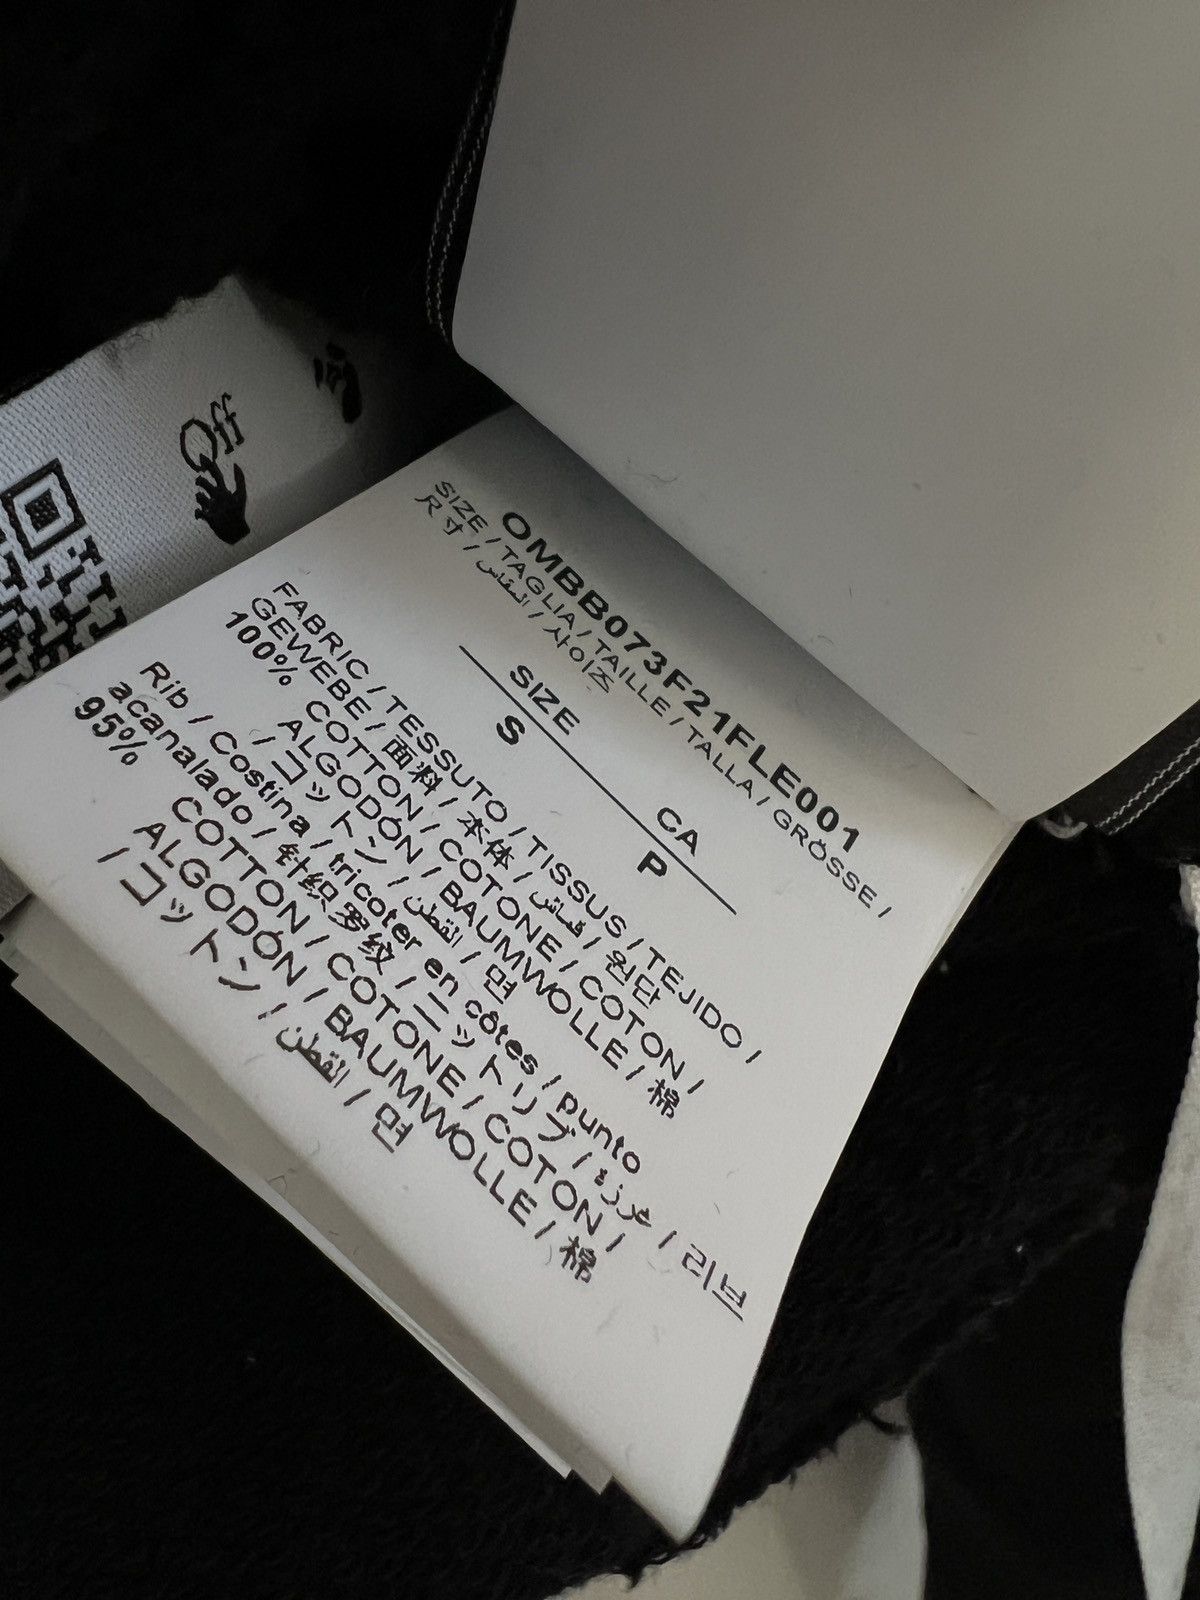 OMBB073F21FLE001
SIZE / TAGLIA / TAILLE / TALLA / GRÖSSE /
尺寸 / المقاس / 사이즈
SIZE CA
S P
FABRIC / TESSUTO / TISSUS / TEJIDO /
GEWEBE / 面料 / 本体 / قماش / 원단
100% COTTON / COTONE / COTON /
ALGODÓN / BAUMWOLLE / 棉
/ コットン / القطن / 면
Rib / Costina / tricoter en côtes / punto
acanalado / 针织罗纹 / ニットリブ / غرزة / 리브
95% COTTON / COTONE / COTON /
ALGODÓN / BAUMWOLLE / 棉
/ コットン / القطن / 면
Off